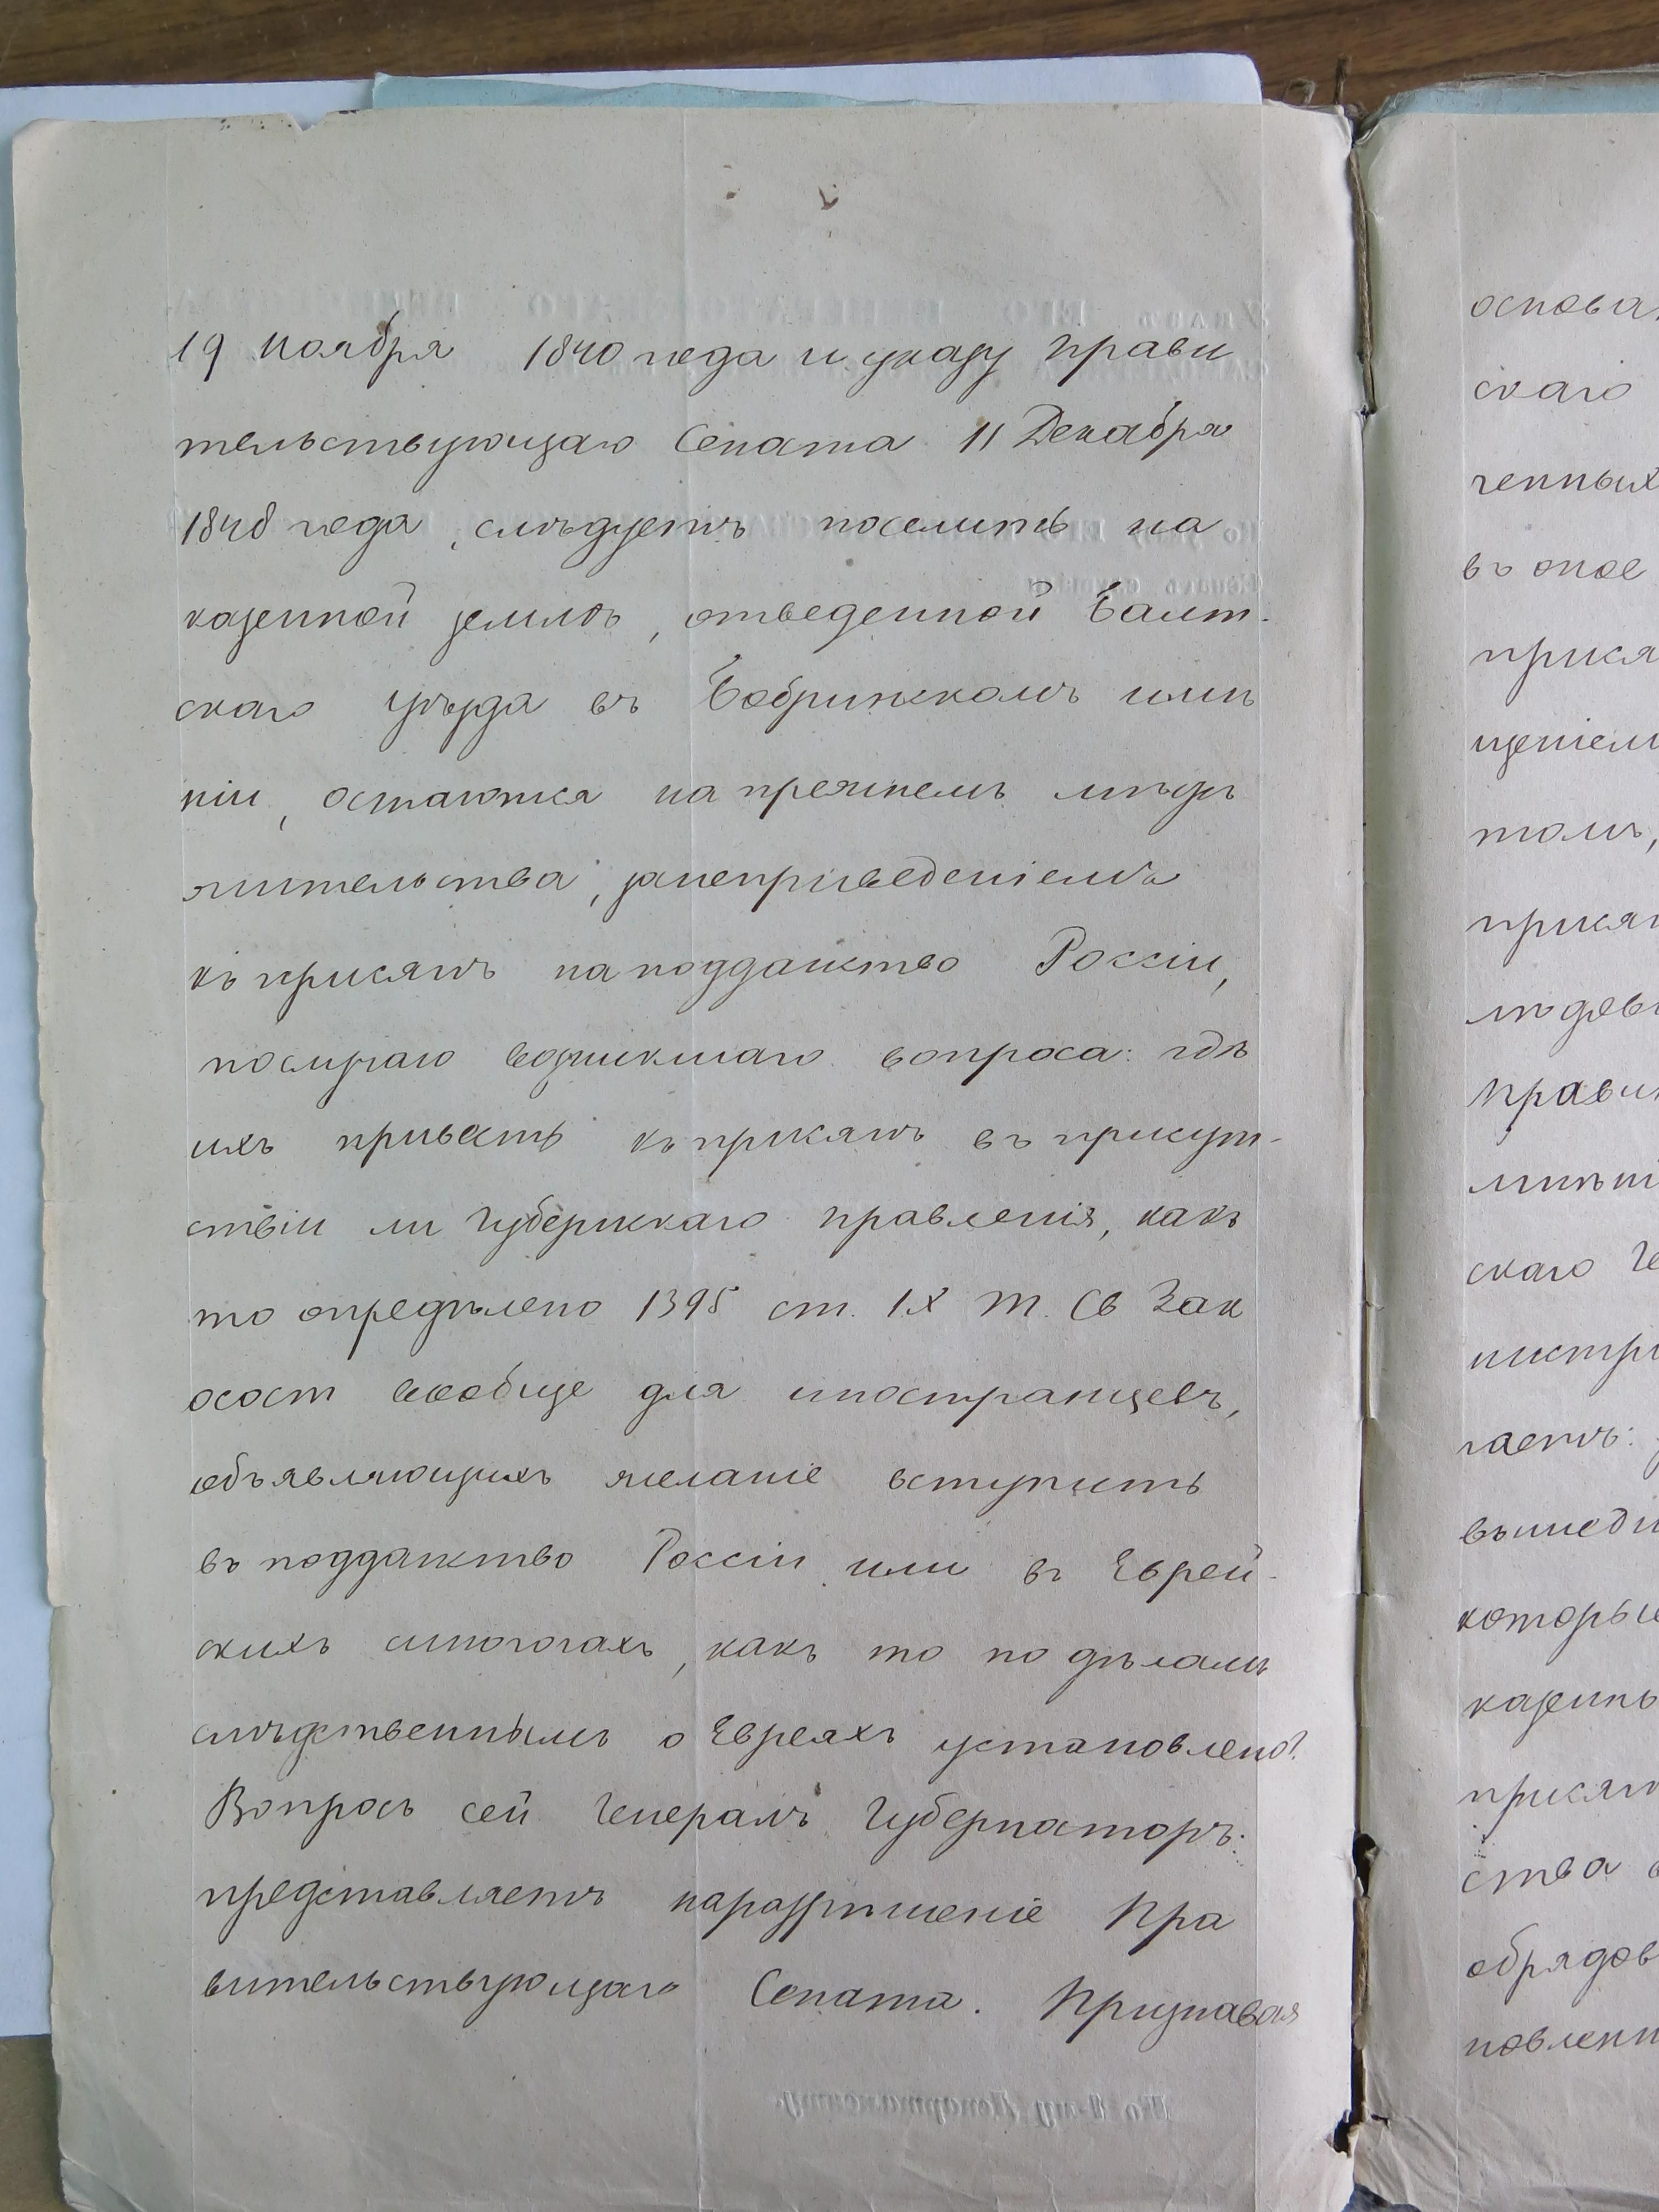 19 Ноября 1840 года и указу Прави
тельствующаго Сената 11 Декабря
1848 года, слѣдуетъ поселить на
казенной землѣ, отведенной Балт-
скаго уѣзда въ Бобринскомъ имѣ
ніи, остаются на прежнемъ мѣстѣ
жительства, за неприведеніемъ
къ присягѣ на подданство Россіи,
по случаю возникшаго вопроса: гдѣ
ихъ привесть къ присягѣ въ присут-
ствіи ли Губернскаго правленія, какъ
то опредѣлено 1395 ст. IX т. Св Зак
о сост вообще для иностранцевъ,
объявляющихъ желаніе вступить
въ подданство Россіи или въ Еврей-
скихъ синогогахъ, какъ то по дѣламъ
слѣдственнымъ о Евреяхъ установлено?
Вопросъ сей Генералъ Губернаторъ
представляетъ на разрѣшеніе Пра
вительствующаго Сената. Признавая
основа
скаго
ченныхъ
въ оное
прися
щеніем
томъ,
прися
Прави
мнѣні
скаго Ге
нистр
гаетъ:
вышед
которые
казенн
присяг
ства
обрядов
новленн